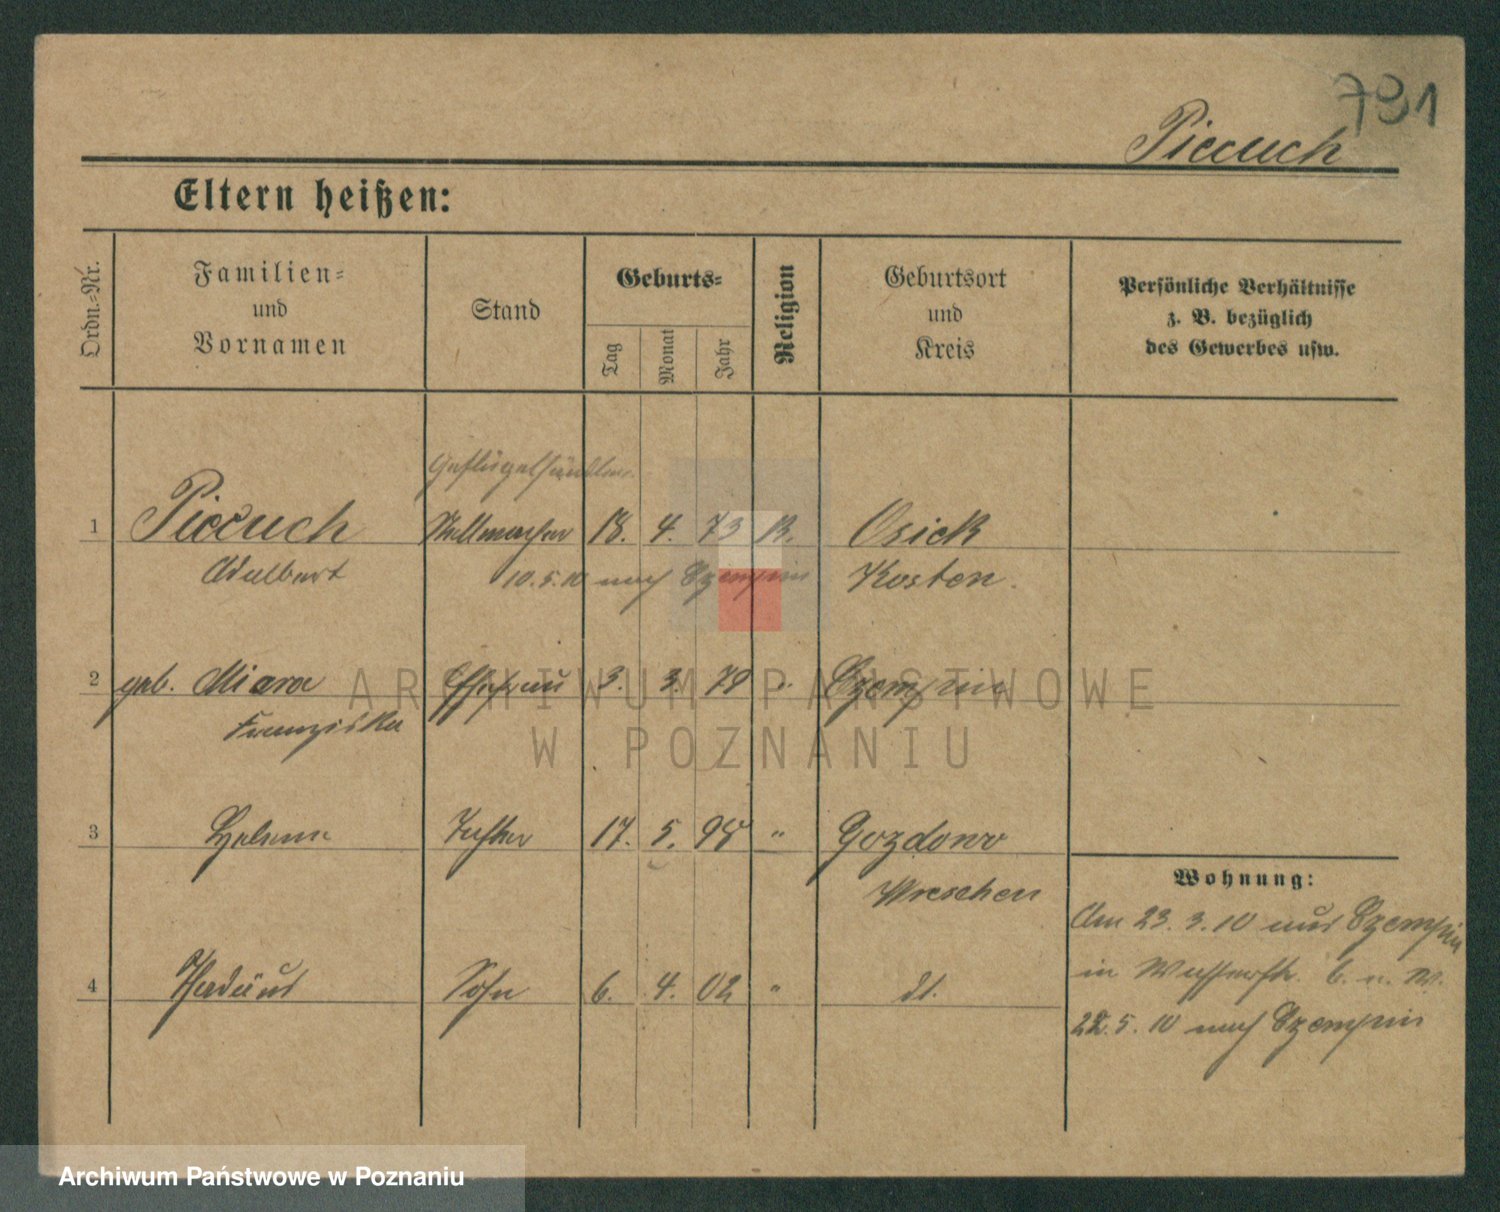 791
Piecuch
Eltern heißen:
Ordn.-Nr.
Familien-
und
Vornamen
Stand
Geburts-
Tag
Monat
Jahr
Religion
Geburtsort
und
Kreis
Persönliche Verhältnisse
z. B. bezüglich
des Gewerbes usw.
Geflügelhändler
1 Piecuch Stellmacher 18. 4. 73 K. Osiek
Adalbert 10.5.10 nach Szempin Kosten.
2 geb. Miara Ehefrau 3. 3. 78 " Szempin
Franziska
3 Helene Tochter 17. 5. 98 " Gozdowo
Wreschen
4 Sohn 6. 4. 02 " dt.
Wohnung:
Am 23. 3. 10 aus Szempin
in 6. n. W.
22. 5. 10 nach Szempin
ARCHIWUM PAŃSTWOWE
W POZNANIU
Archiwum Państwowe w Poznaniu